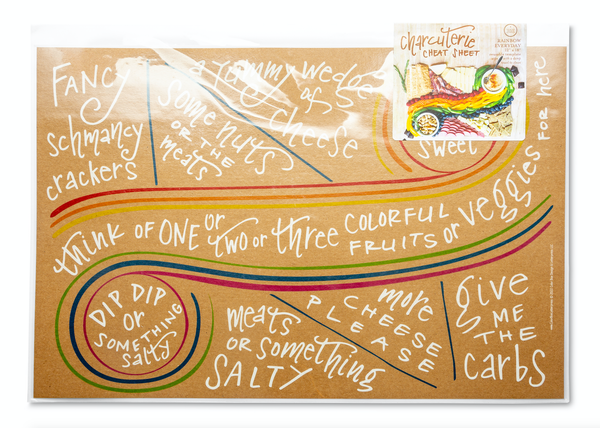 FANCY
schmancy
crackers
a yummy wedge
of
cheese
some nuts
OR THE
meats
charcuterie
CHEAT SHEET
RAINBOW
EVERYDAY
sweet
think OF ONE or
two or three COLORFUL
FRUITS or veggies FOR here
DIP DIP
or
SOMETHING
salty
meats
OR something
SALTY
more
CHEESE
PLEASE
give
ME
THE
carbs